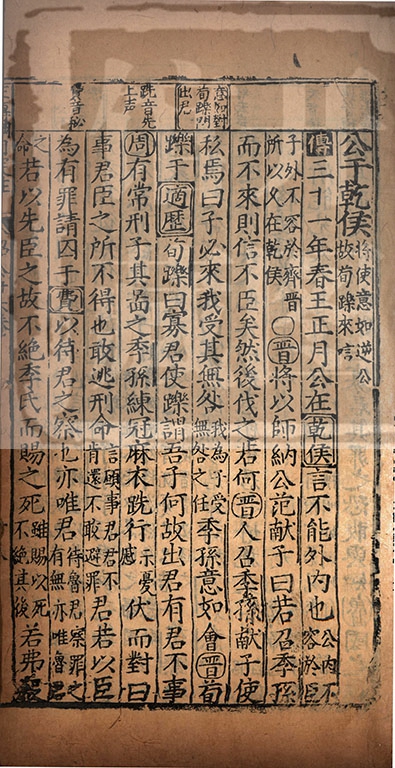 意如對
荀躒問
出君
跣音先
上声
費音秘
公于乾侯將使意如逆公故荀躒來言
傳三十一年春王正月公在乾侯言不能外內也公內不容於臣
子外不容於齊晉所以久在乾侯〇晉將以師納公范献子曰若召季孫
而不來則信不臣矣然後伐之若何晉人召季孫献子使
私焉曰子必來我受其無咎我為子受無咎之任季孫意如會晉荀
躒于適歷荀躒曰寡君使躒謂吾子何故出君有君不事
周有常刑子其啚之季孫練冠麻衣跣行示憂感伏而對曰
事君臣之所不得也敢逃刑命言願事君君不肯還不敢避罪君若以臣
為有罪請囚于費以待君之察也亦唯君待魯君察罪之有無亦唯魯君
之命若以先臣之故不絕季氏而賜之死雖賜以死不絕其後若弗